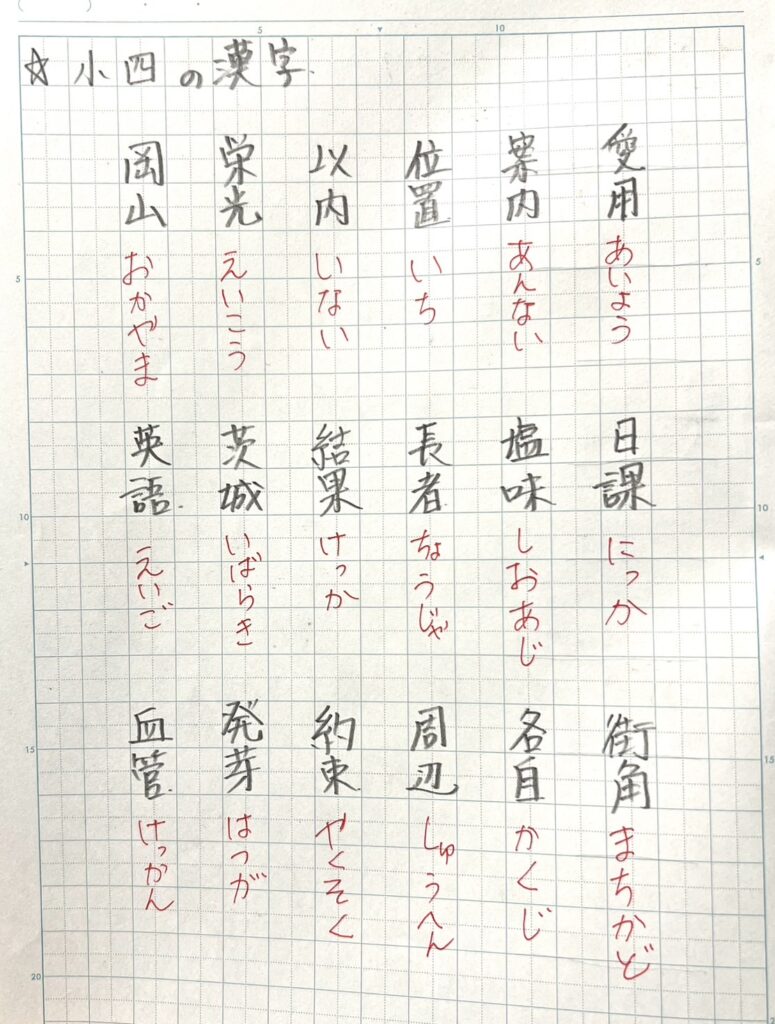 ☆小四の漢字
愛用 あいよう
案内 あんない
位置 いち
以内 いない
栄光 えいこう
岡山 おかやま
日課 にっか
塩味 しおあじ
長者 ちょうじゃ
結果 けっか
茨城 いばらき
英語 えいご
街角 まちかど
各自 かくじ
周辺 しゅうへん
約束 やくそく
発芽 はつが
血管 けっかん
5
10
5
10
15
20
5
10
15